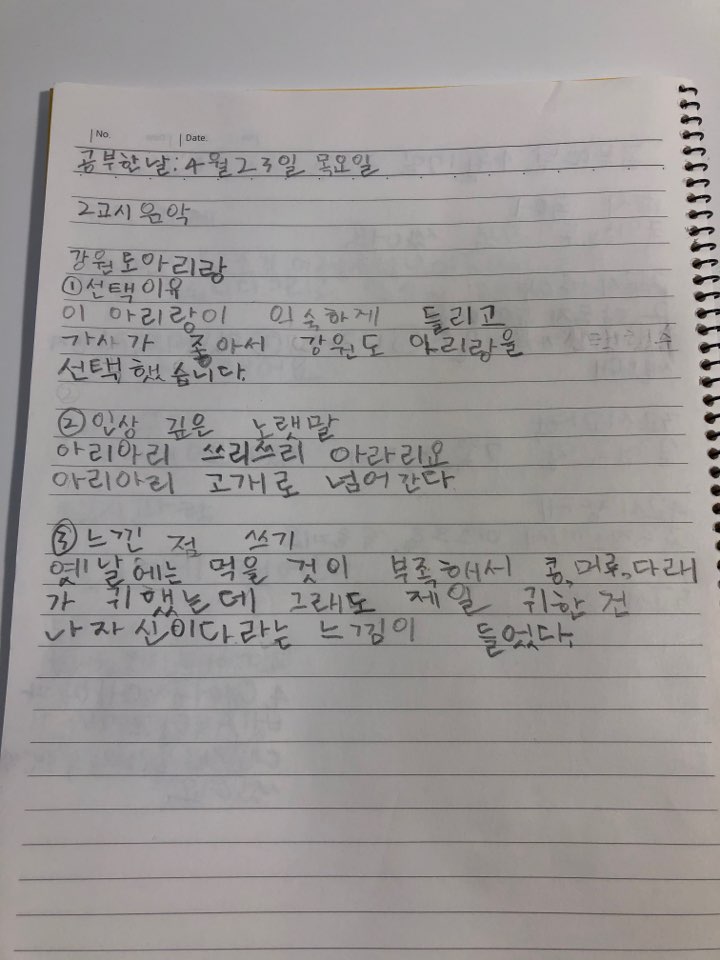 No.
Date.
공부한날:4월23일 목요일
2교시음악
강원도아리랑
①선택이유
이 아리랑이 익숙하게 들리고
가사가 좋아서 강원도 아리랑을
선택했습니다.
②인상 깊은 노랫말
아리아리 쓰리쓰리 아라리요
아리아리 고개로 넘어간다
③느낀 점 쓰기
옛날에는 먹을 것이 부족해서 콩,머루,다래
가 귀했는데 그래도 제일 귀한건
나자신이다라는 느낌이 들었다.